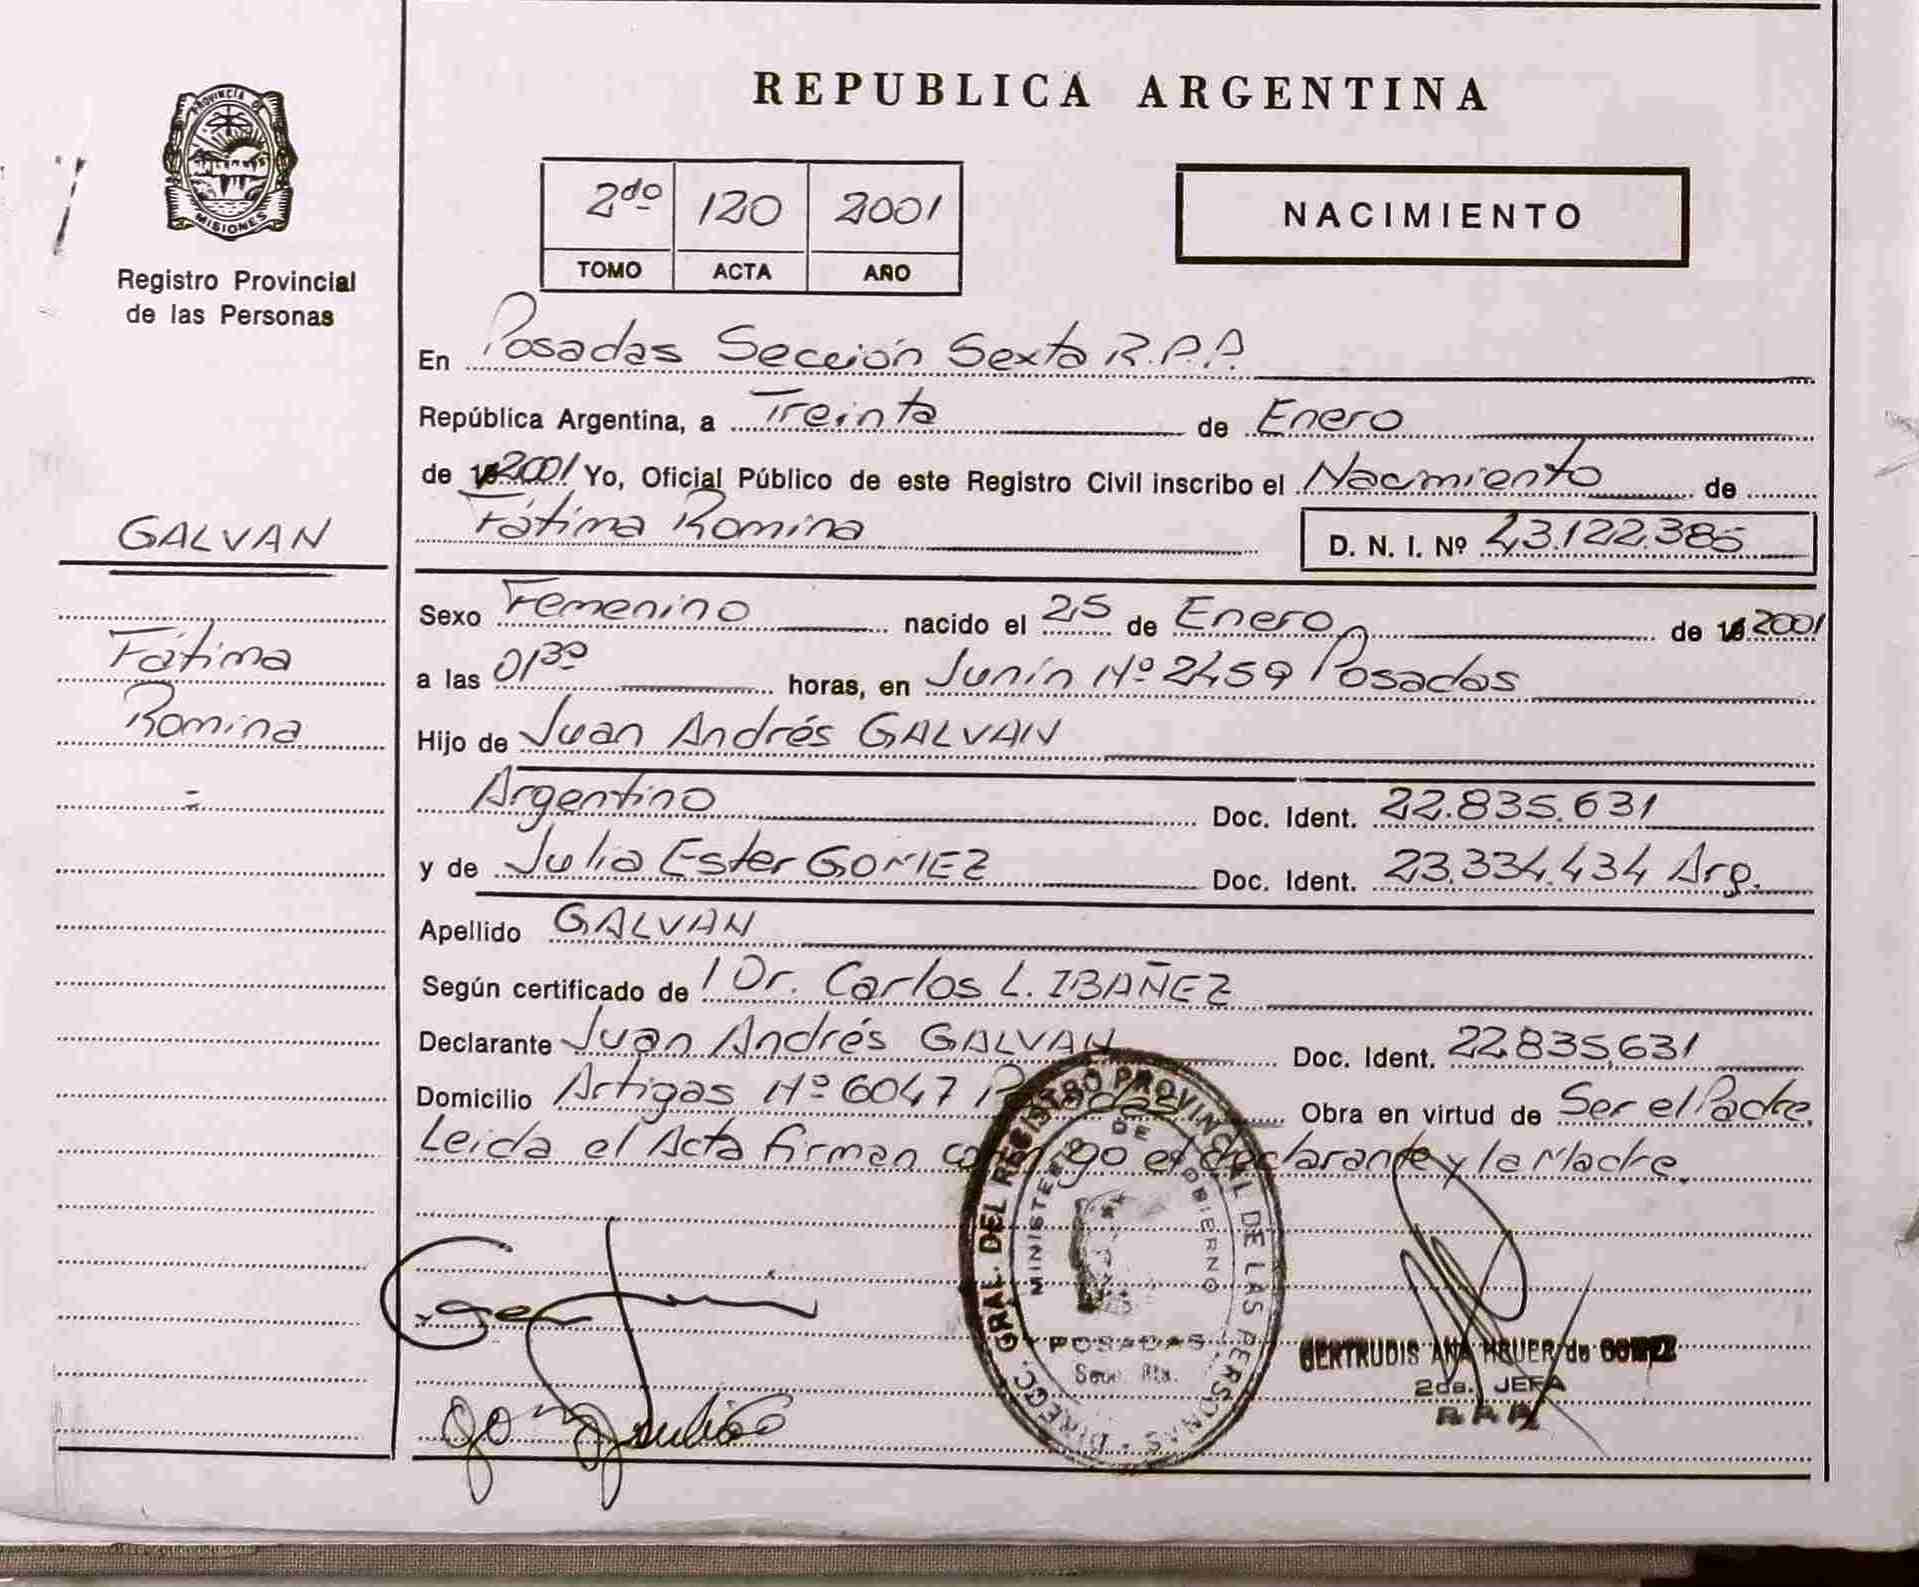 REPUBLICA ARGENTINA
PROVINCIA DE
MISIONES
Registro Provincial
de las Personas
2do 120 2001
TOMO ACTA AÑO
NACIMIENTO
En Posadas Sección Sexta R.P.P.
República Argentina, a Treinta de Enero
de 2001 Yo, Oficial Público de este Registro Civil inscribo el Nacimiento de
Fátima Romina D. N. I. Nº 43.122.385
GALVAN
Fátima
Romina
Sexo Femenino nacido el 25 de Enero de 2001
a las 01³⁰ horas, en Junín Nº 2459 Posadas
Hijo de Juan Andrés GALVAN
Argentino Doc. Ident. 22.835.631
y de Julia Ester GOMEZ Doc. Ident. 23.334.434 Arg.
Apellido GALVAN
Según certificado de l Dr. Carlos L. IBAÑEZ
Declarante Juan Andrés GALVAN Doc. Ident. 22.835.631
Domicilio Artigas Nº 6047 Posadas Obra en virtud de Ser el Padre.
Leida el Acta firman conmigo el declarante y la Madre.
DIREGC. GRAL. DEL REGISTRO PROVINCIAL DE LAS PERSONAS
MINISTERIO DE GOBIERNO
POSADAS
GERTRUDIS ANA de GOMEZ
2da. JEFA
R.P.P.